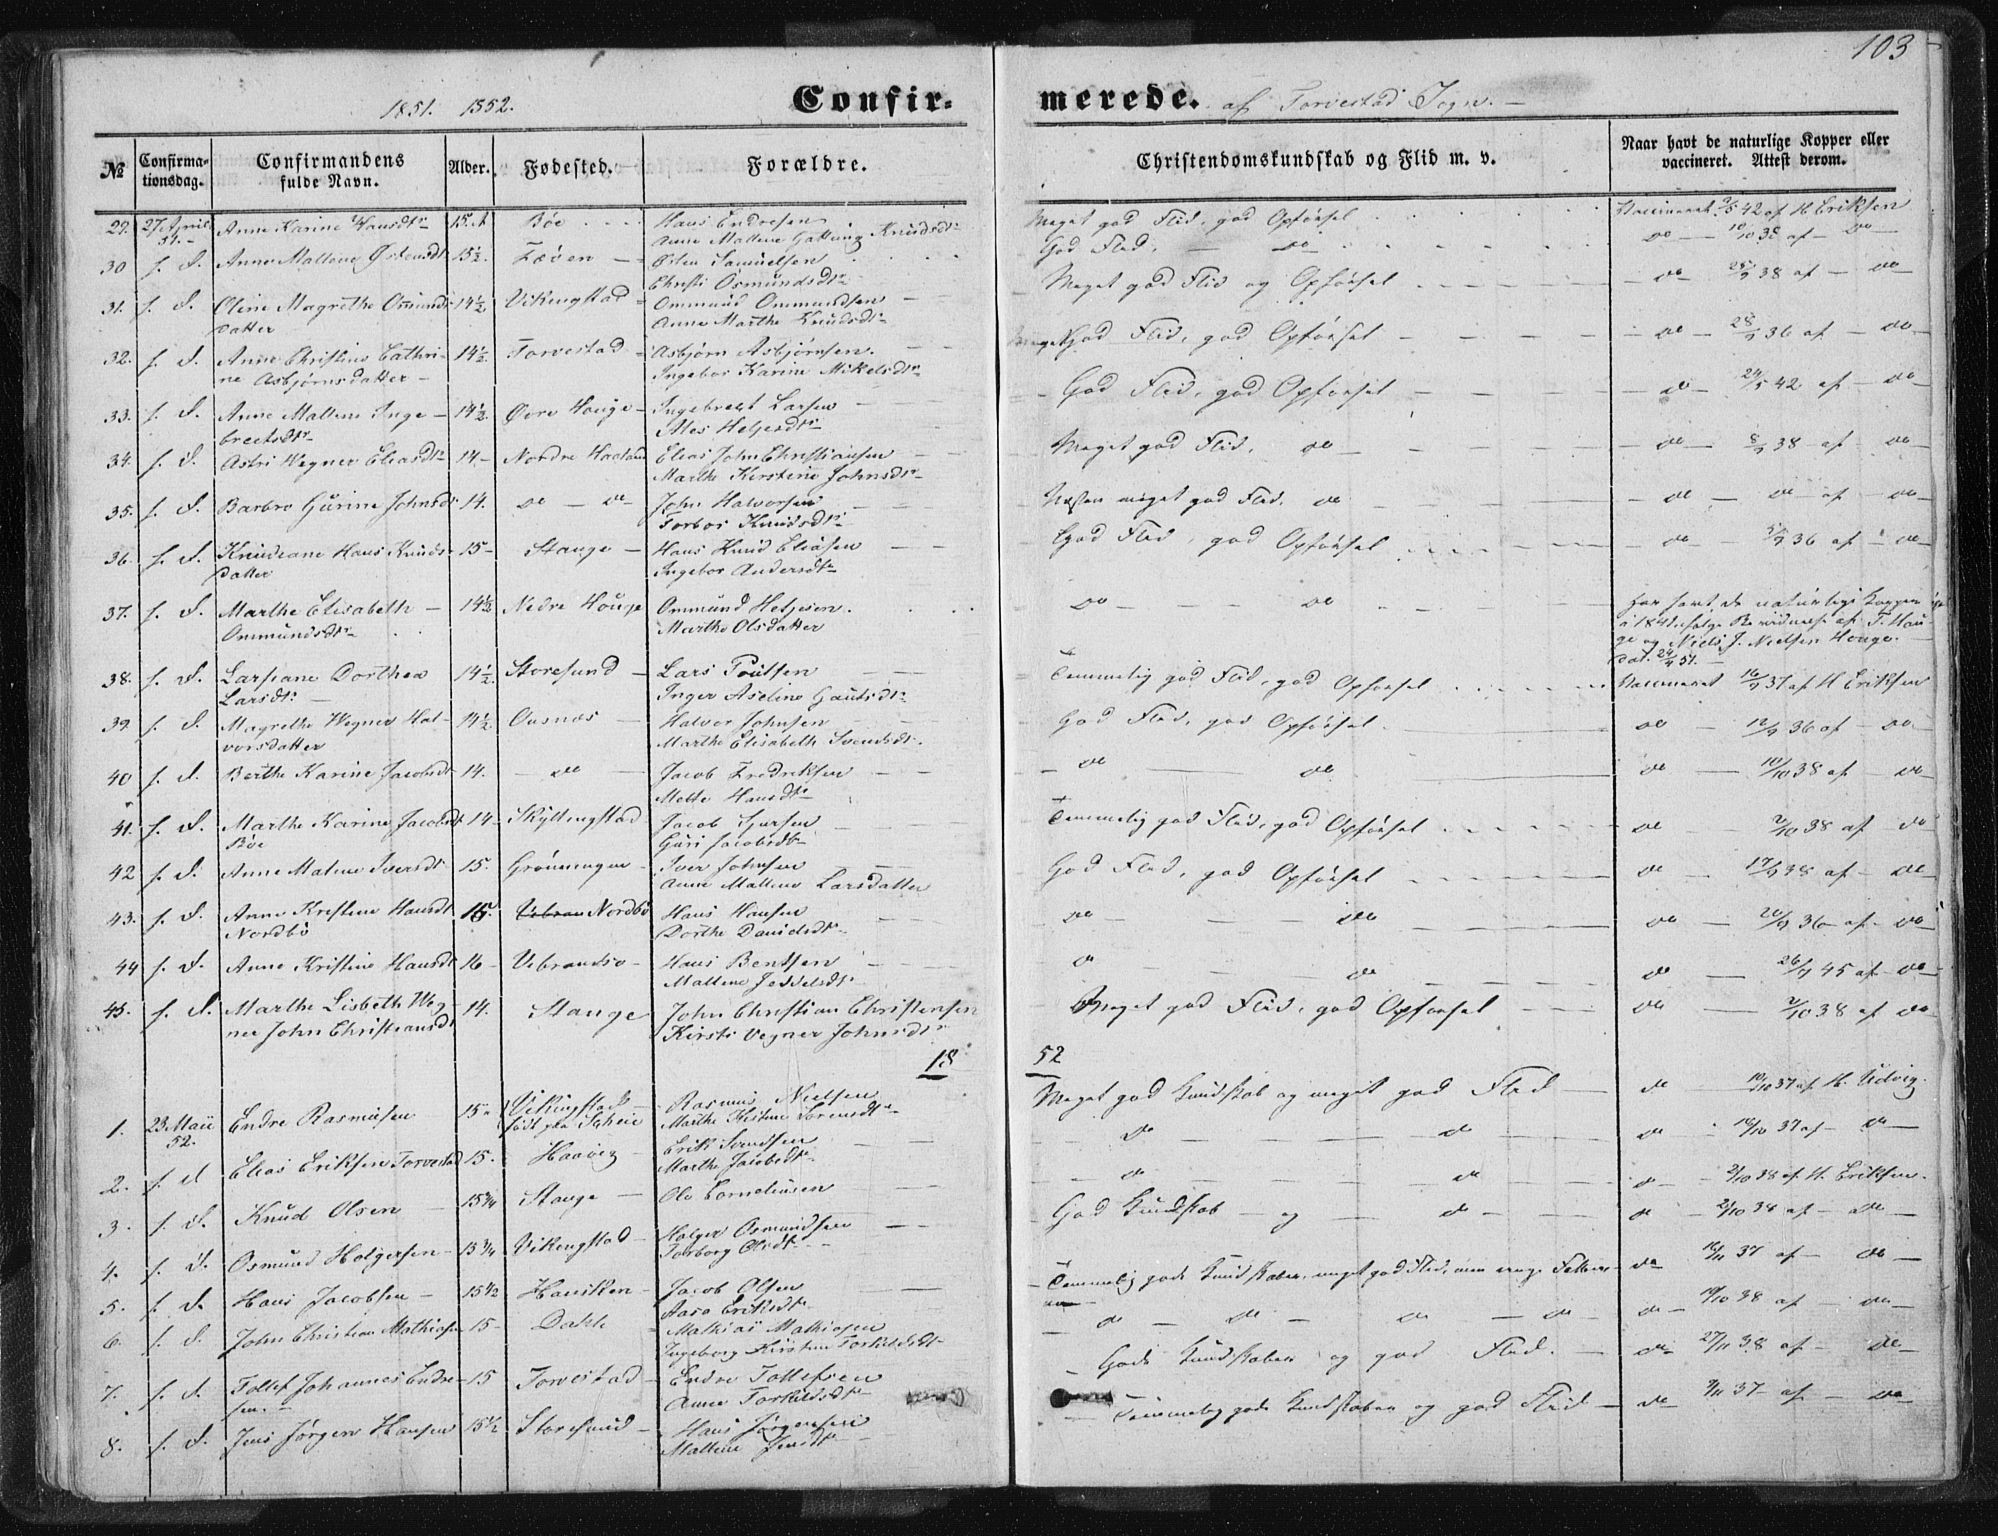 103
1851. 1852.
Confir-
merede. af Torvestad Sogn.
№
Confirma-
tionsdag.
Confirmandens
fulde Navn.
Alder.
Fødested.
Forældre.
Christendomskundskab og Flid m. v.
Naar havt de naturlige Kopper eller
vaccineret. Attest derom.
29. 27 April 51. Anne Karine Hansdtr 15. Bøe Hans Endresen
Anne Mallene Knudsdtr Meget god Flid, god Opførsel Vaccineret 42 af H. Eriksen
30 s. D. Anne Mallene Østensdt 15½. Østen Samuelsen
Christi Osmundsdtr God Flid. do do 10/10 38 af do
31. s. D. Oline Magrethe Osmunds
datter 14½ Vikingstad Ommund Ommundsen
Anne Marthe Knudsdtr Meget god Flid og Opførsel do 38 af do
32. s. D. Anne Christine Cathri-
ne Asbjørnsdatter 14½. Torvestad Asbjørn Asbjørnsen.
Ingebor Karine Mikelsdtr Meget God Flid, god Opførsel do 36 af do
33. s. D. Anne Mallene Inge-
bretsdtr 14½. Øvre Houge Ingebregt Larsen
God Flid, god Opførsel do 24/5 42 af do
34. s. D. Astri Wegner Eliasdtr 14. Nordre Elias John Christiansen
Marthe Kirstine Johnsdtr Meget god Flid. do do 38 af do
35. s. D. Barbro Gurine Johnsdt 14. do do John Halvorsen
Torbor Knudsdtr Næsten meget god Flid. do do do af do
36. s. D. Knudeane Hans Knuds-
datter 15 Stange Hans Knud Eliasen
Ingebor Andersdtr God Flid, god Opførsel do 36 af do
37. s. D. Marthe Elisabeth
Ommundsdtr 14½ Nedre Houge Ommund Heljesen.
Marthe Olsdatter do do Har havt de naturlige Kopper
i 1841 ifølge af T. Hau-
ge og Niels J. Nielsen Houge.
dat. 24/4 51.
38. s. D. Larsiane Dorthea
Larsdtr 14½. Storesund Lars Poulsen
Inger Aseline Gautsdtr Temmelig god Flid, god Opførsel Vaccineret 37 af H. Eriksen
39. s. D. Magrethe Wegner Hal-
vorsdatter 14½. Halvor Johnsen
Marthe Elisabeth Svendsdt. God Flid, god Opførsel. do 36 af do
40 s. D. Berthe Karine Jacobsdt 14. do Jacob Fredriksen
Mette Hansdtr do do do 10/10 38 af do
41. s. D. Marthe Karine Jacobsdt
Bøe 14 Skyllingstad Jacob
Guri Jacobsdtr Temmelig god Flid, god Opførsel do 2/10 38 af do
42 s. D. Anne Malene Iversdt 15. Grønningen Iver Johnsen
Anne Mallene Larsdatter God Flid, god Opførsel do 38 af do
43. s. D. Anne Kristine Hansdt
Nordbø 15. Nordbø Hans Hansen
Dorthe Danielsdtr do do do 36 af do
44 s. D. Anne Kristine Hansdt 16 Hans Bentsen
Mallene do do do 45 af do
45. s. D. Marthe Lisbeth Weg-
ner John Christiansdt 14. Stange John Christian Christensen
Kirsti Vegner Johnsdtr Meget god Flid, god Opførsel do 2/10 38 af do
18
52
1. 23 Maii
52. Endre Rasmusen 15 Vikingstad
født paa Rasmus Nielsen
Marthe Meget god Kundskab og meget god Flid do 37 af H. Udvig.
2. s. D Elias Eriksen Torvestad 15. Haavig Erik Svendsen
Marthe Jacobsdtr do do do 37 af do
3. s. D. Knud Olsen 15¾ Stange Ole Corneliusen do do do 2/10 38 af H. Eriksen.
4. s. D. Osmund Holgersen 15¾ Vikingstad Holger Osmundsen
Torborg Olsdtr God Kundskab og do do 2/10 38 af do
5. s. D. Hans Jacobsen 15½ Hausken Jacob Olsen
Aasa Eriksdtr Temmelig gode Kundskaber, meget god Flid, men do 37 af do
6. s. D. John Christian Mathiasen 15 Dahle Mathias Mathiasen
Ingeborg Kirstine Torkildsdtr do do do do do 38 af do
7. s. D. Tollef Johannes Endre-
sen. 15 Torvestad Endre Tollefsen
Anne Torkildsdtr Gode Kundskaber og god Flid. do 27/11 38 af do
8. s. D. Jens Jørgen Hansen 15½ Storesund Hans Jørgensen
Mallene Jensdtr Temmelig gode Kundskaber og god Flid do 37 af do